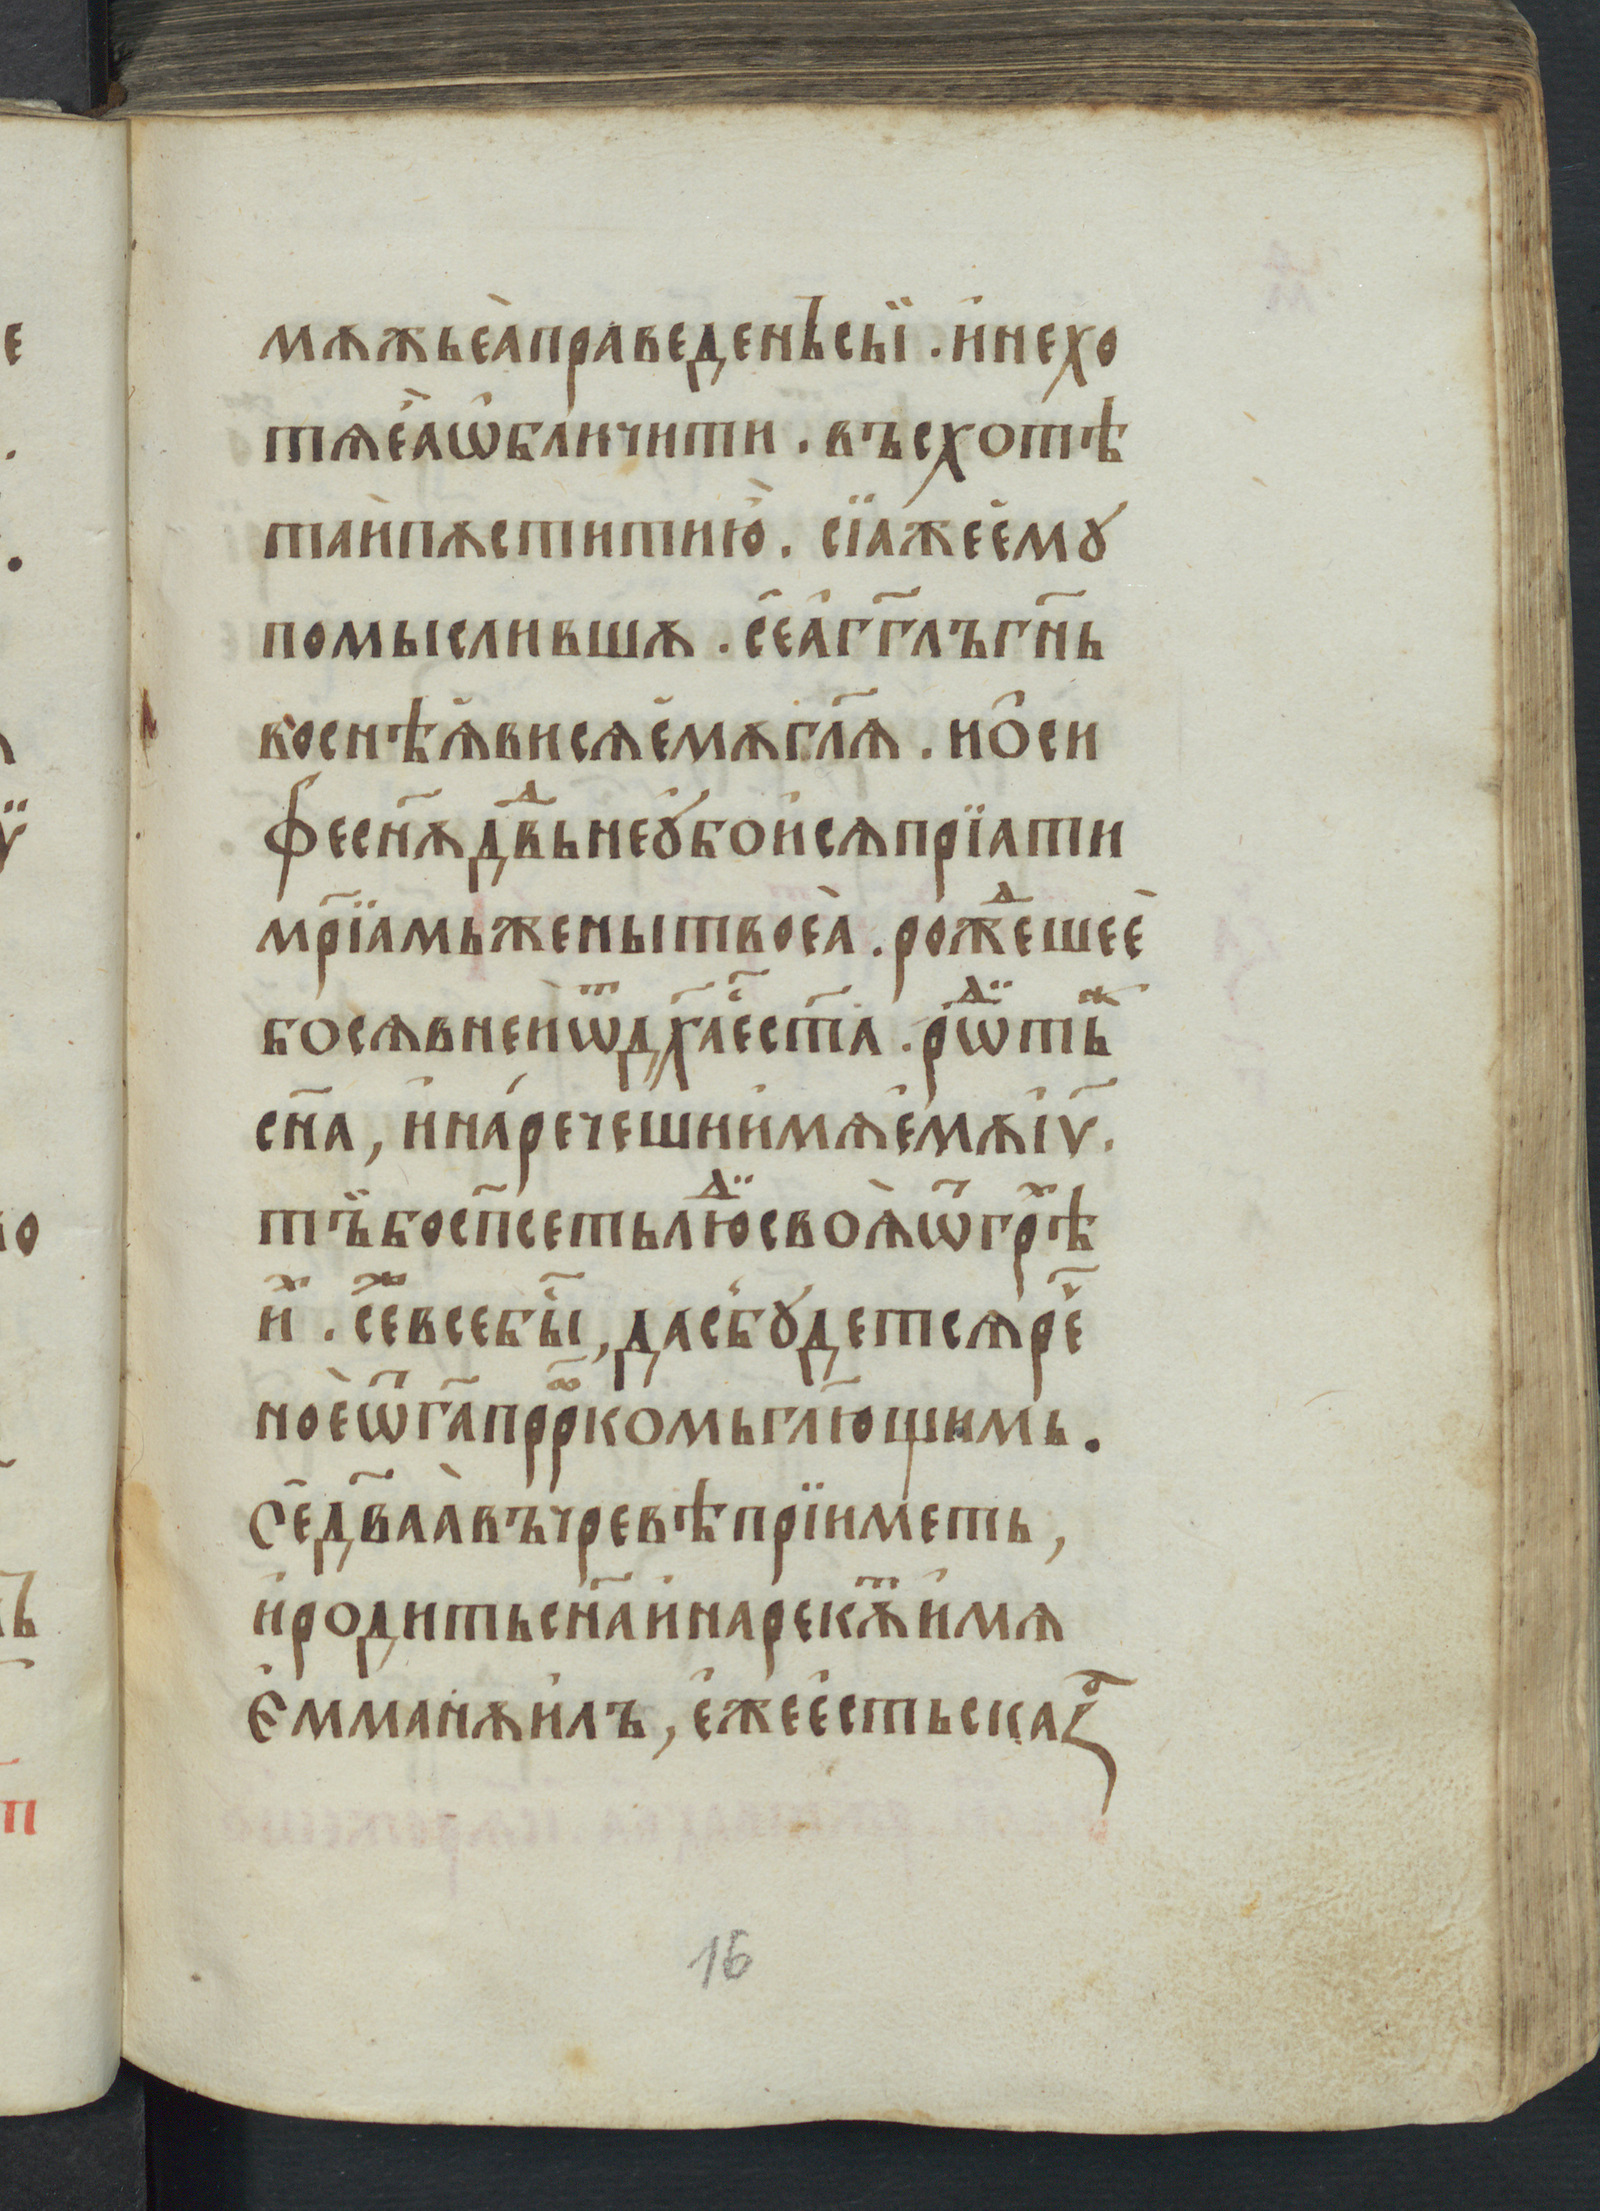 мѫжьеѧ̀праведенъсьї . и҆нехо
тѧе҆ѧ̀ѡ҆бличити . въсхотѣ
таи҆пѫститию̀ . сїажеѐмꙋ
помыслившѫ . се҆а҆гг҃лъгн҃ь
воснѣꙗ҆висѧе҆мѫгл҃ѧ . ио҆си
фесн҃ѫдв҃ⷣьнеꙋ҆бои҆сѧпрїати
мр҃їамьженытвоеѧ̀ . рожⷣешеѐ
босѧвнеиѿдх҃ае҆ст҃а . рѡⷣтьⷤ
сн҃а , и҆на́речешии҆мѧе҆мѫі҆ѵ҃ .
тъ̈босп҃сетьлюⷣсвоѧ̀ѿгрⷯѣ
иⷯ . сеⷤвсебы҃ , дасъбꙋдетсѧре҃
ноѐѿг҃апррⷪ҇комьгл҃ющимь .
Се҆дв҃аꙗ̀въчревѣпрїиметь ,
и҆родитьсн҃аи҆нарекѫⷮи҆мѧ
Е҆мманѫи҆лъ , е҆жее҆стьсказⷶ
16